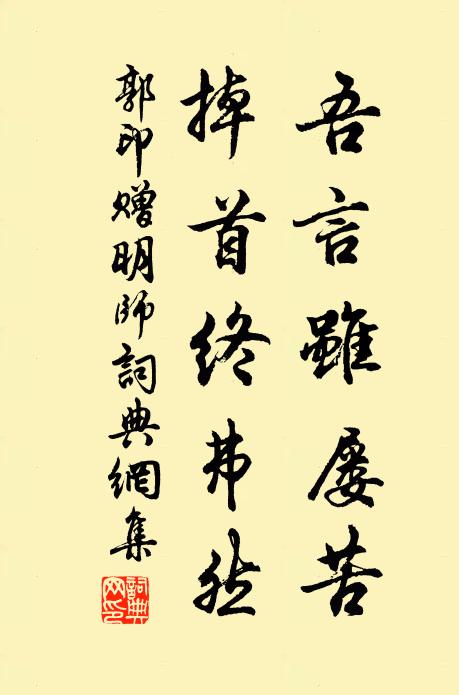 吾言雖屢苦
掉首終弗然
郭印贈明師詞典網集
詞典